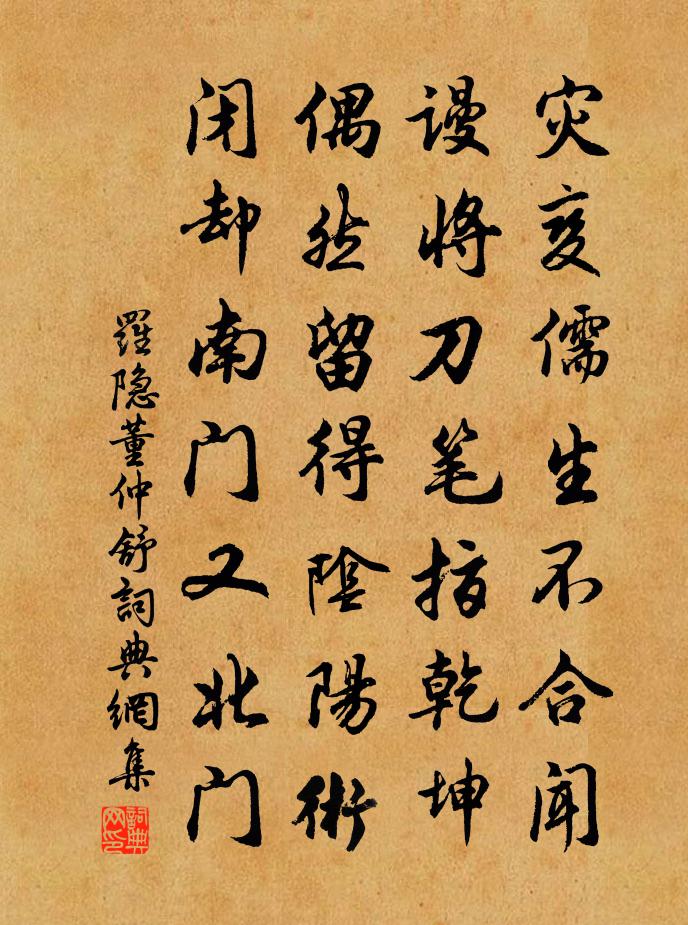 灾变儒生不合闻
谩将刀笔指乾坤
偶然留得陰陽術
闭却南门又北门
羅隐董仲舒詞典網集
詞典网印